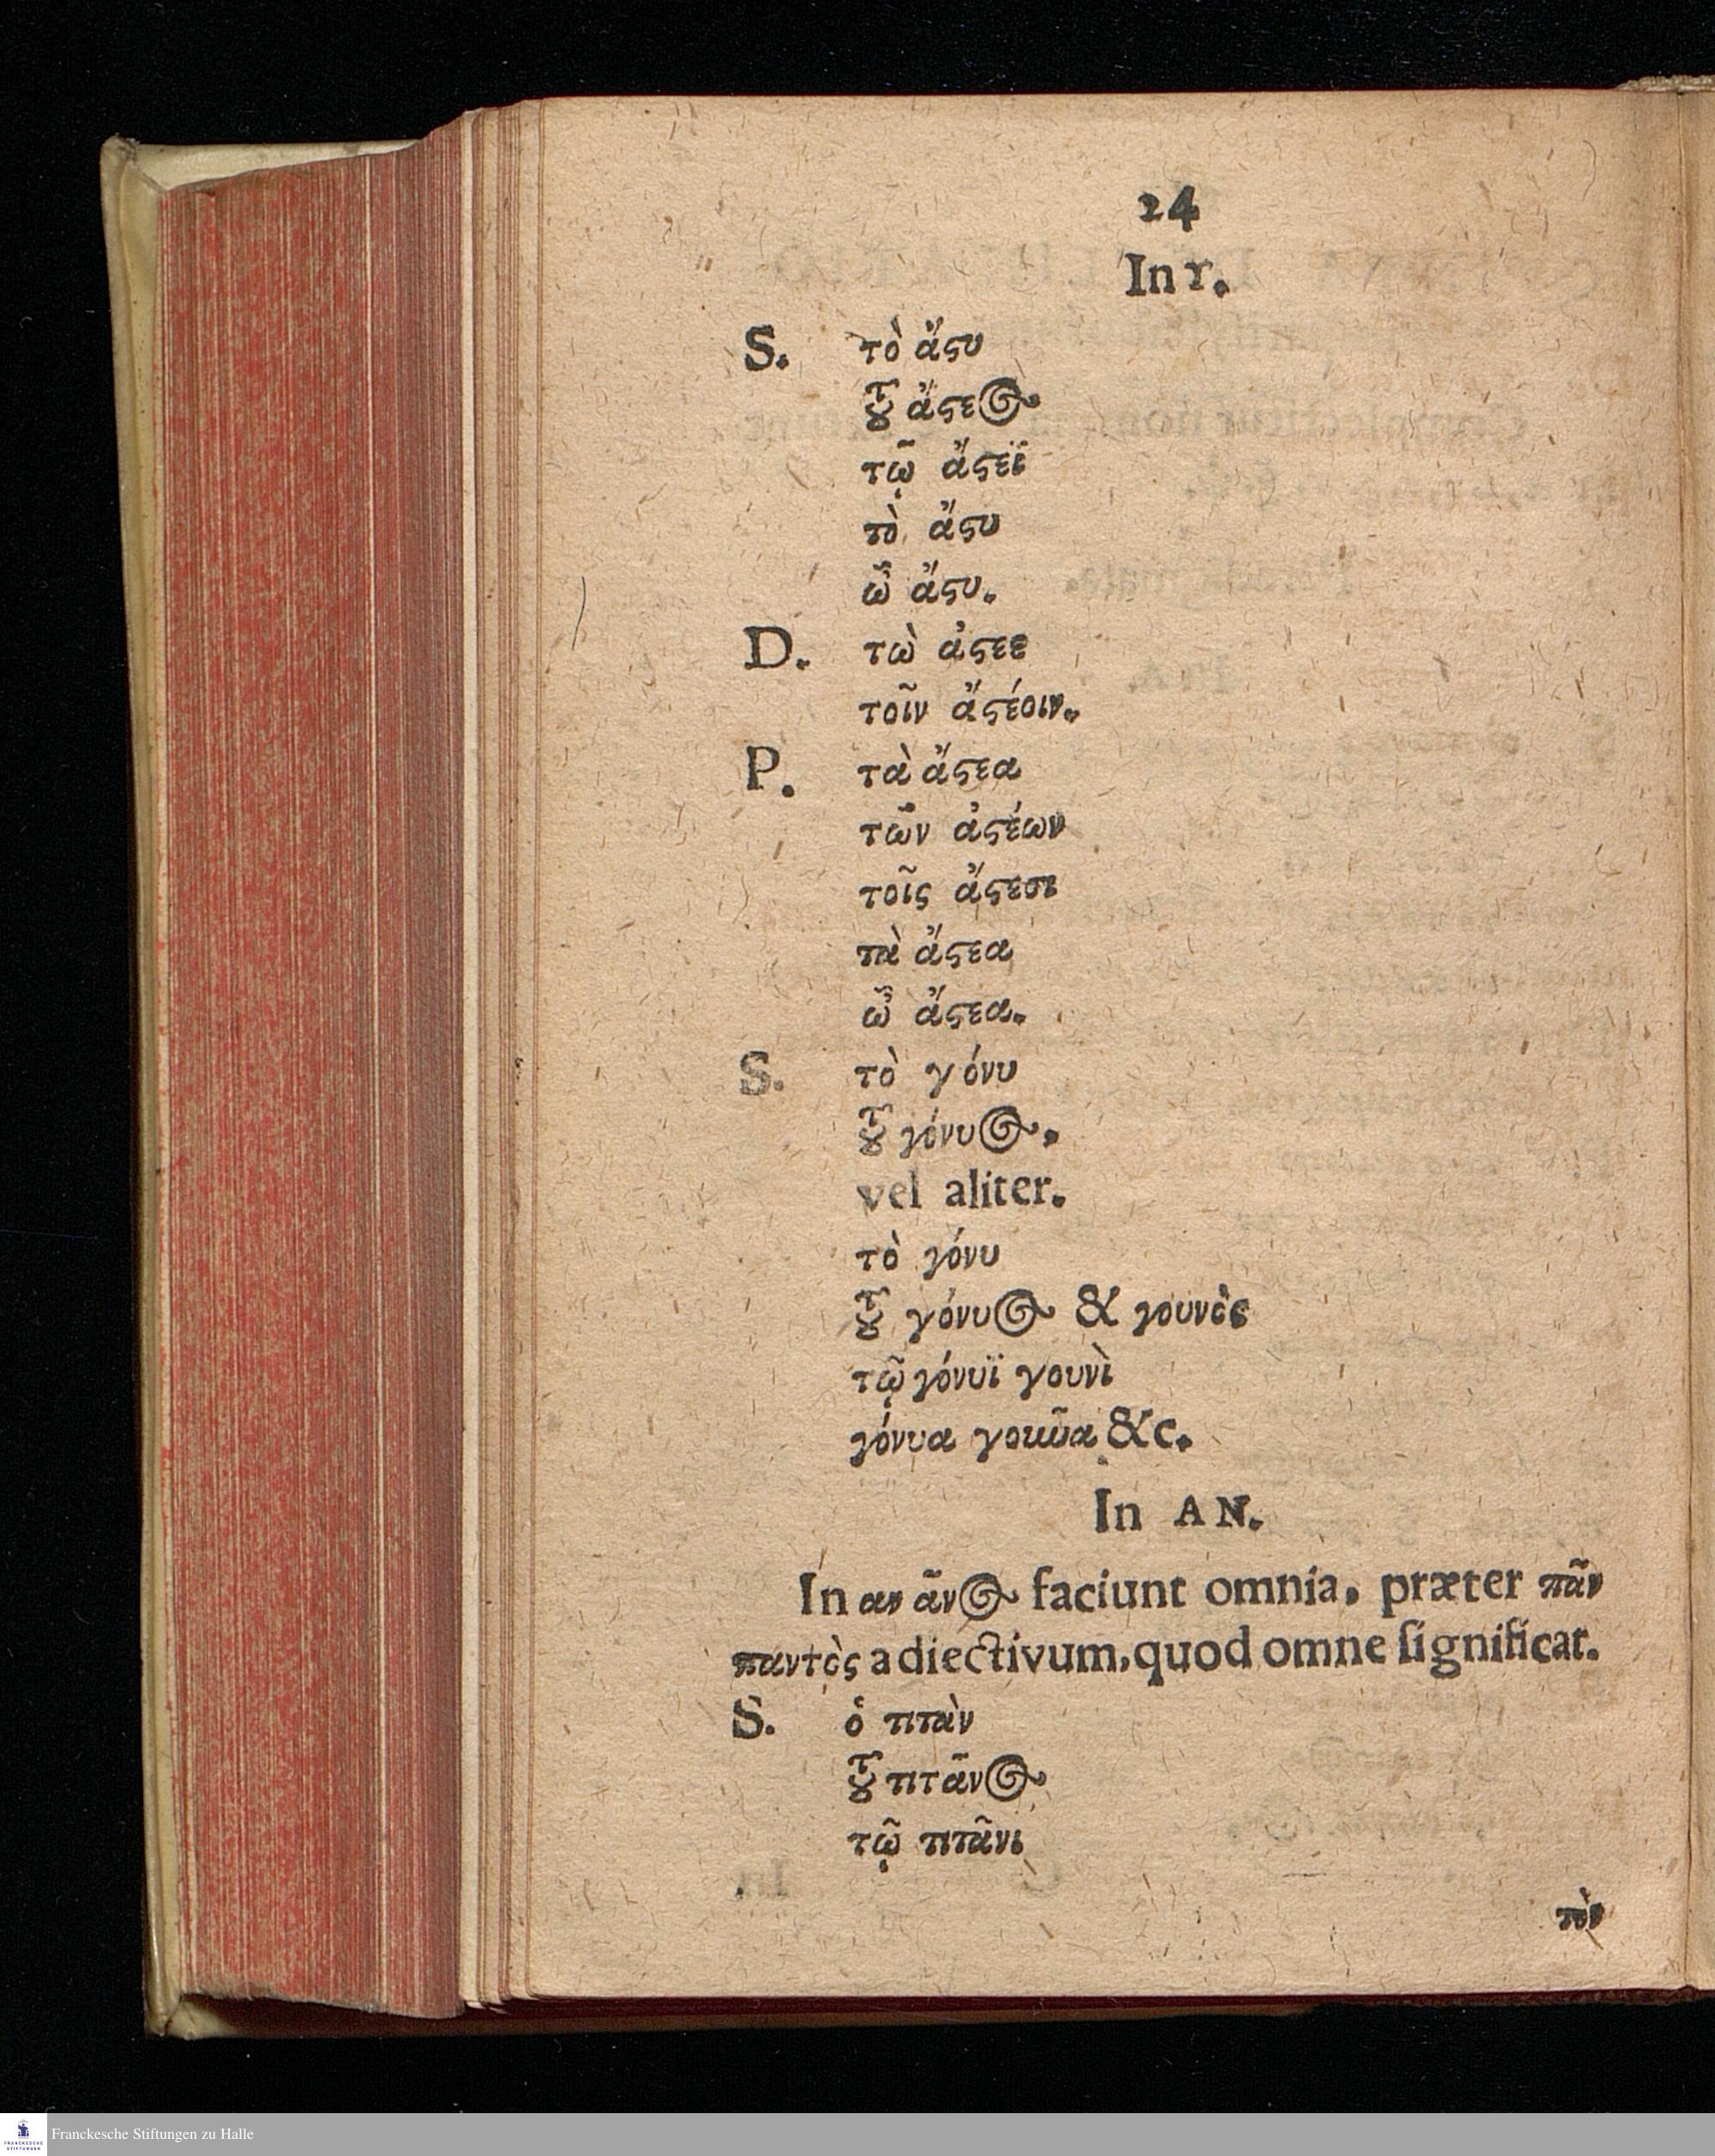 24
In Υ.
S. τὸ ἄϛυ
τȣ͂ ἄϛεος
τῷ ἄϛεϊ
τὸ ἄϛυ
ὦ ἄϛυ.
D. τὼ ἀϛεε
τοῖν ἄϛέοιν.
P. τὰ ἄϛεα
τῶν ἀϛέων
τοῖς ἄϛεσι
τὰ ἄϛεα
ὦ ἄϛεα.
S. τὸ γόνυ
τȣ͂ γόνυος.
vel aliter.
τὸ γόνυ
τȣ͂ γόνυος & γουνὸς
τῷ γόνυϊ γουνὶ
γόνυα γοιῦα &c.
In AN.
In αν ᾶνος faciunt omnia, præter πᾶν
παντὸς adiectivum, quod omne ſignificat.
S. ὁ τιτὰν
τȣ͂ τιτᾶνος
τῷ τιτᾶνι
τὸν
Franckesche Stiftungen zu Halle
FRANCKESCHE
STIFTUNGEN